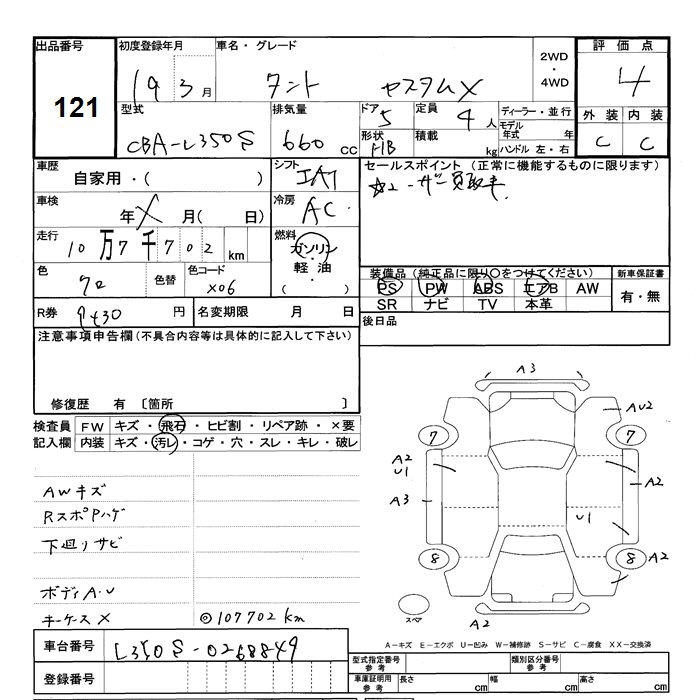 出品番号 初度登録年月 車名・グレード 2WD・4WD 評価点
121 19 3月 タント カスタムX 4
型式 排気量 ドア 定員 ディーラー・並行 外装 内装
CBA-L350S 660cc 5 4人 モデル年式 年 C C
形状 H/B 積載 kg ハンドル 左・右
車歴 自家用・( ) シフト IAT セールスポイント (正常に機能するものに限ります)
☆ユーザー買取車
車検 年 X 月( 日) 冷房 AC
走行 10万7千702km 燃料 ガソリン・軽油・( )
装備品 (純正品に限り○をつけてください) 新車保証書
色 クロ 色替 色コード X06 PS PW ABS エアB AW 有・無
SR ナビ TV 本革
R券 円 名変期限 月 日 後日品
注意事項申告欄(不具合内容等は具体的に記入して下さい)
修復歴 有 〔箇所 〕
検査員記入欄 FW キズ・飛石・ヒビ割・リペア跡・×要
内装 キズ・汚レ・コゲ・穴・スレ・キレ・破レ
AWキズ
RスポPハゲ
下廻りサビ
ボディA.U
キーケースX ◎107702km
A3
AU2
7 7
A2
U1
A2
A3
U1
8 8 A2
スペア
A2
A-キズ E-エクボ U-凹み W-補修跡 S-サビ C-腐食 XX-交換済
車台番号 L350S-0268849
登録番号
型式指定番号参考 類別区分番号参考
車庫証明用参考 長さ cm 幅 cm 高さ cm